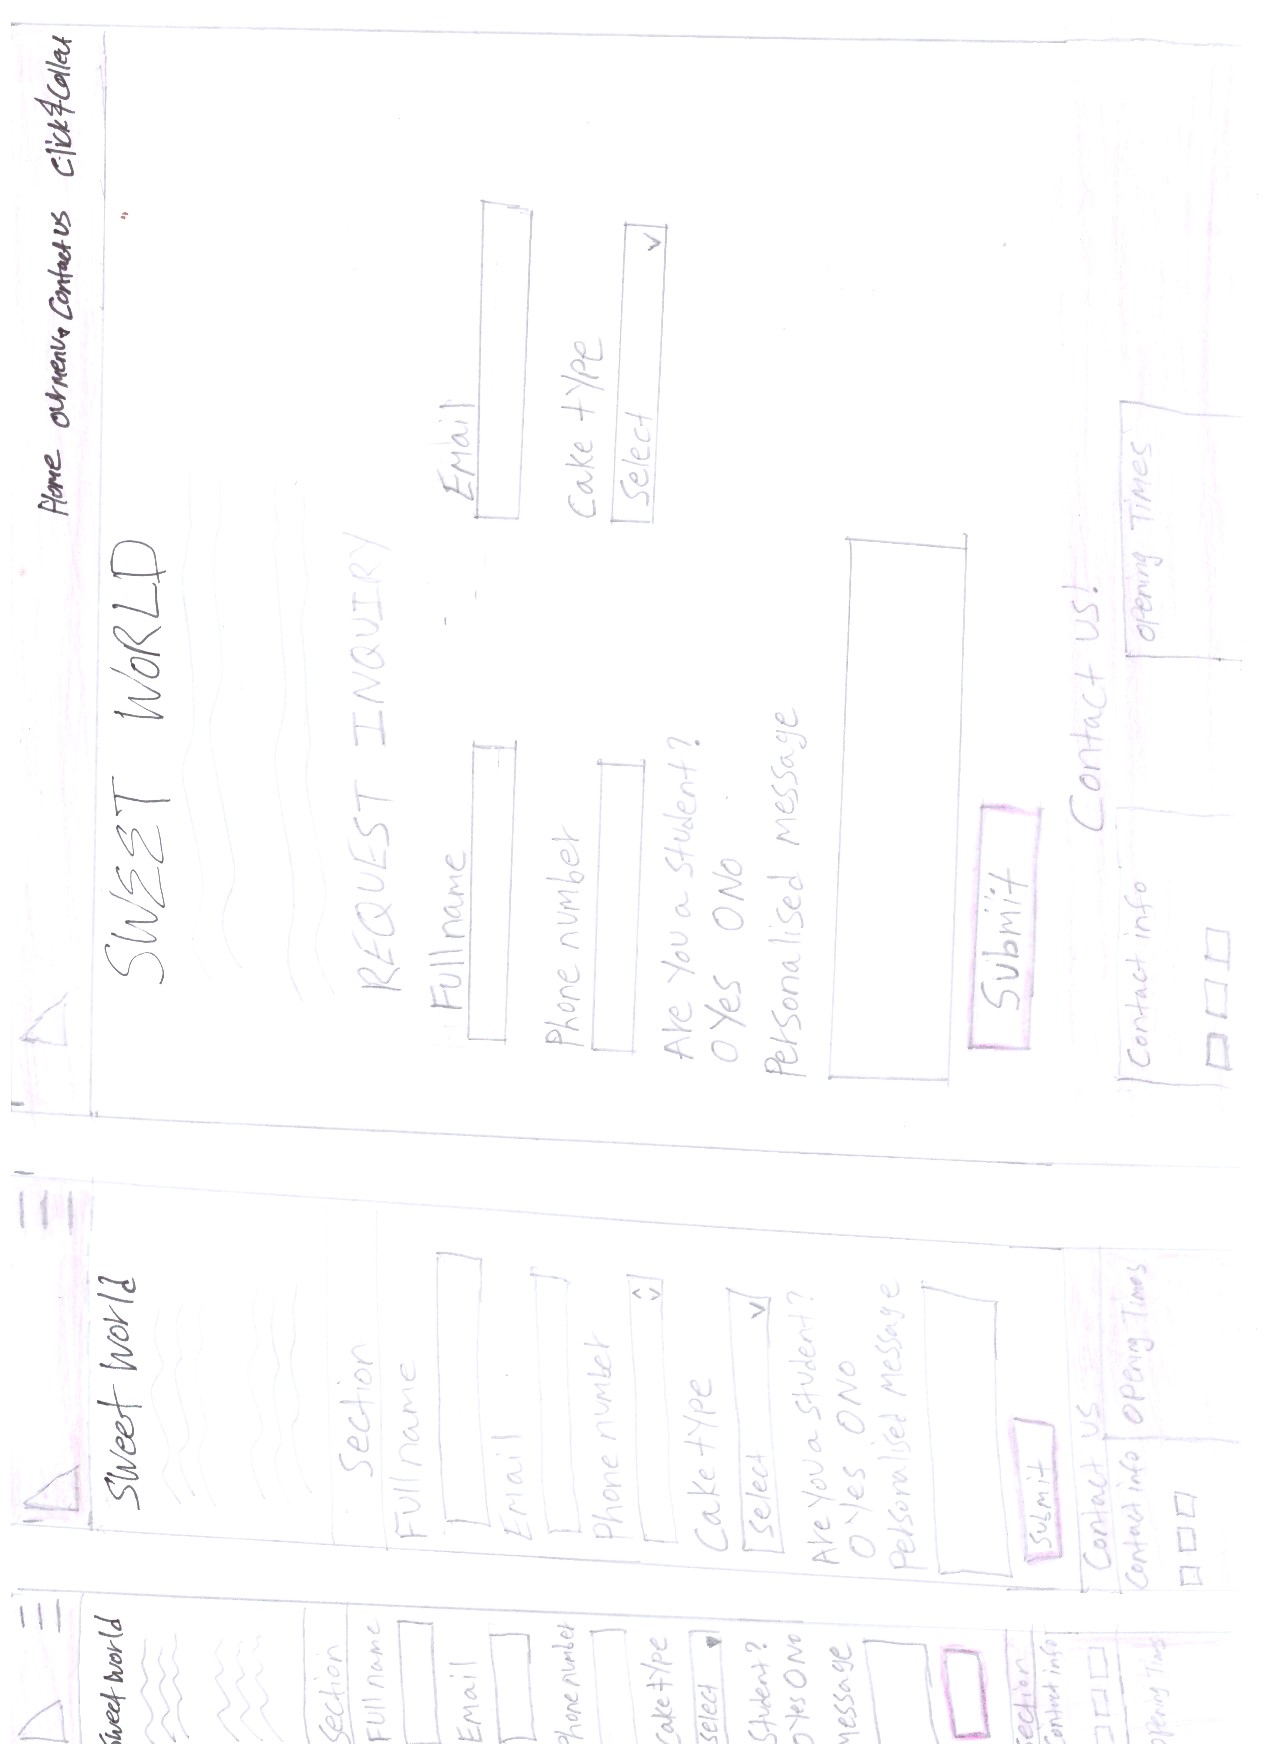 Sweet World
Section
Full name
Email
Phone number
Cake type
Select
Student?
O Yes O No
Message
Section
Contact info
Opening Times
Sweet World
Section
Full name
Email
Phone number
Cake type
Select
Are you a student?
O Yes O No
Personalised message
Submit
Contact us
Contact info
Opening Times
Home Our menu Contact us Click & Collect
SWEET WORLD
REQUEST INQUIRY
Full name
Email
Phone number
Cake type
Select
Are you a student?
O Yes O No
Personalised message
Submit
Contact us!
Contact info
Opening Times